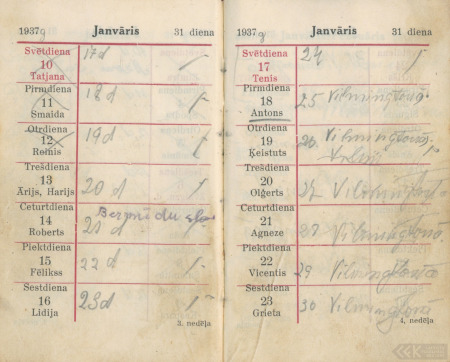 1937g Janvāris 31 diena
Svētdiena
10
Tatjana
17d
Pirmdiena
11
Smaida
18 d
Otrdiena
12
Reinis
19d
Trešdiena
13
Ārijs, Harijs
20 d
Ceturtdiena
14
Roberts
21 d
Piektdiena
15
Fēlikss
22 d
Sestdiena
16
Lidija
23d
3. nedēļa
1937g Janvāris 31 diena
Svētdiena
17
Tenis
24
Pirmdiena
18
Antons
25 Vilmingtonā
Otrdiena
19
Ķeistuts
26 Vilmingtonā
Trešdiena
20
Oļģerts
27 Vilmingtonā
Ceturtdiena
21
Agneze
28 Vilmingtonā
Piektdiena
22
Vicentis
29 Vilmingtonā
Sestdiena
23
Grieta
30 Vilmingtonā
4. nedēļa